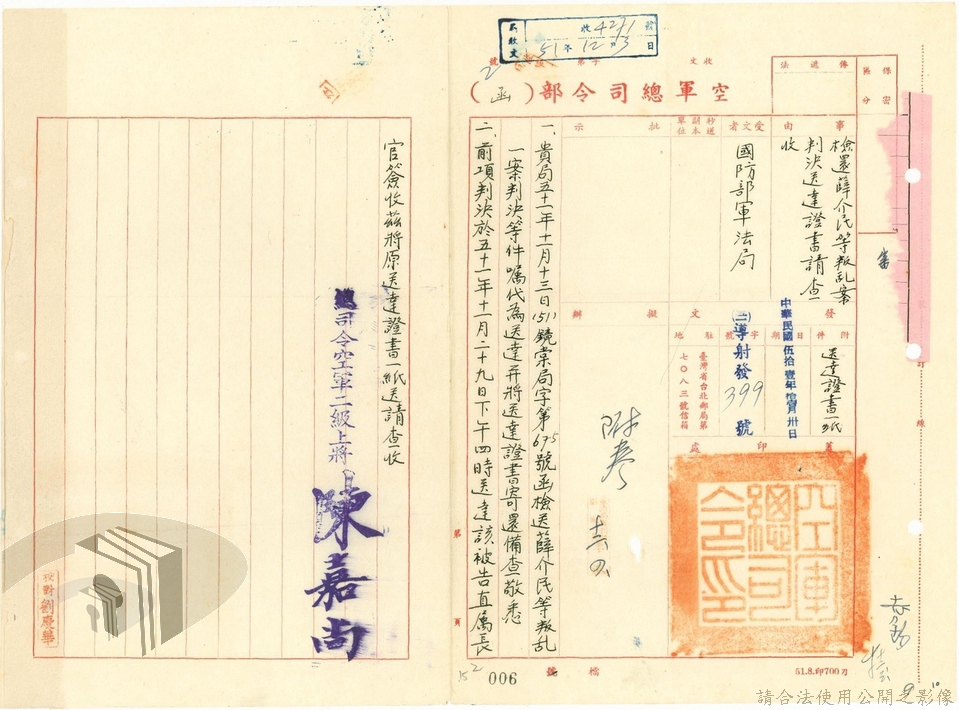 局收文
收4211號
51年12月3日
收文 字第 號
2
空軍總司令部(函)
保密區分
傳遞法
事由
檢還薛介民等叛乱案
判決送達證書請查
收
受文者
國防部軍法局
抄送副本單位
批示
發文
附件
送達證書一紙
日期
中華民國伍拾壹年拾壹月卅日
字號
(三)導射發399號
駐地
臺灣省台北郵局第
七〇八三號信箱
擬辦
附卷
蓋印處
空軍總司令印
一、貴局五十一年十一月十三日(51)鏡棠局字第675號函檢送薛介民等叛乱
一案判決等件囑代為送達并將送達證書寄還備查敬悉
二、前項判決於五十一年十一月二十九日下午四時送達該被告直屬長
官簽收茲將原送達證書一紙送請查收
總司令空軍二級上將陳嘉尚
校對劉慶華
第 頁
檔號
006
51.8.印700刀
訂
線
請合法使用公開之影像